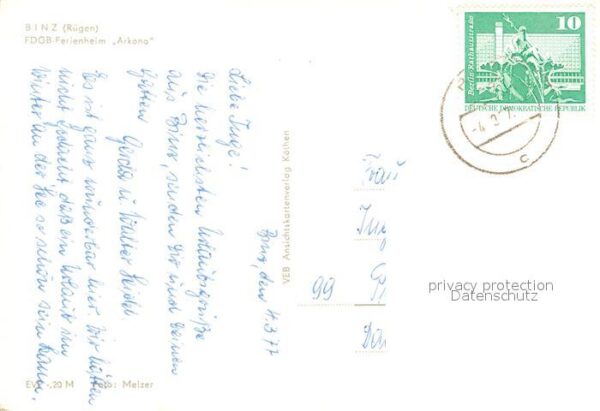 BINZ (Rügen)
FDGB-Ferienheim „Arkona“
Binz, den 4.3.77
Liebe Inge!
Die herzlichsten Urlaubsgrüße
aus Binz, senden Dir und Deinen
Götten Gerda u Walter
Es ist ganz wunderbar hier. Wir hätten
nicht gedacht daß ein Urlaub im
Winter an der See so schön sein kann.
EVP -,20 M Foto: Melzer
VEB Ansichtskartenverlag Köthen
Frau
99
10
Berlin-Rathausstraße
DEUTSCHE DEMOKRATISCHE REPUBLIK
c
privacy protection
Datenschutz